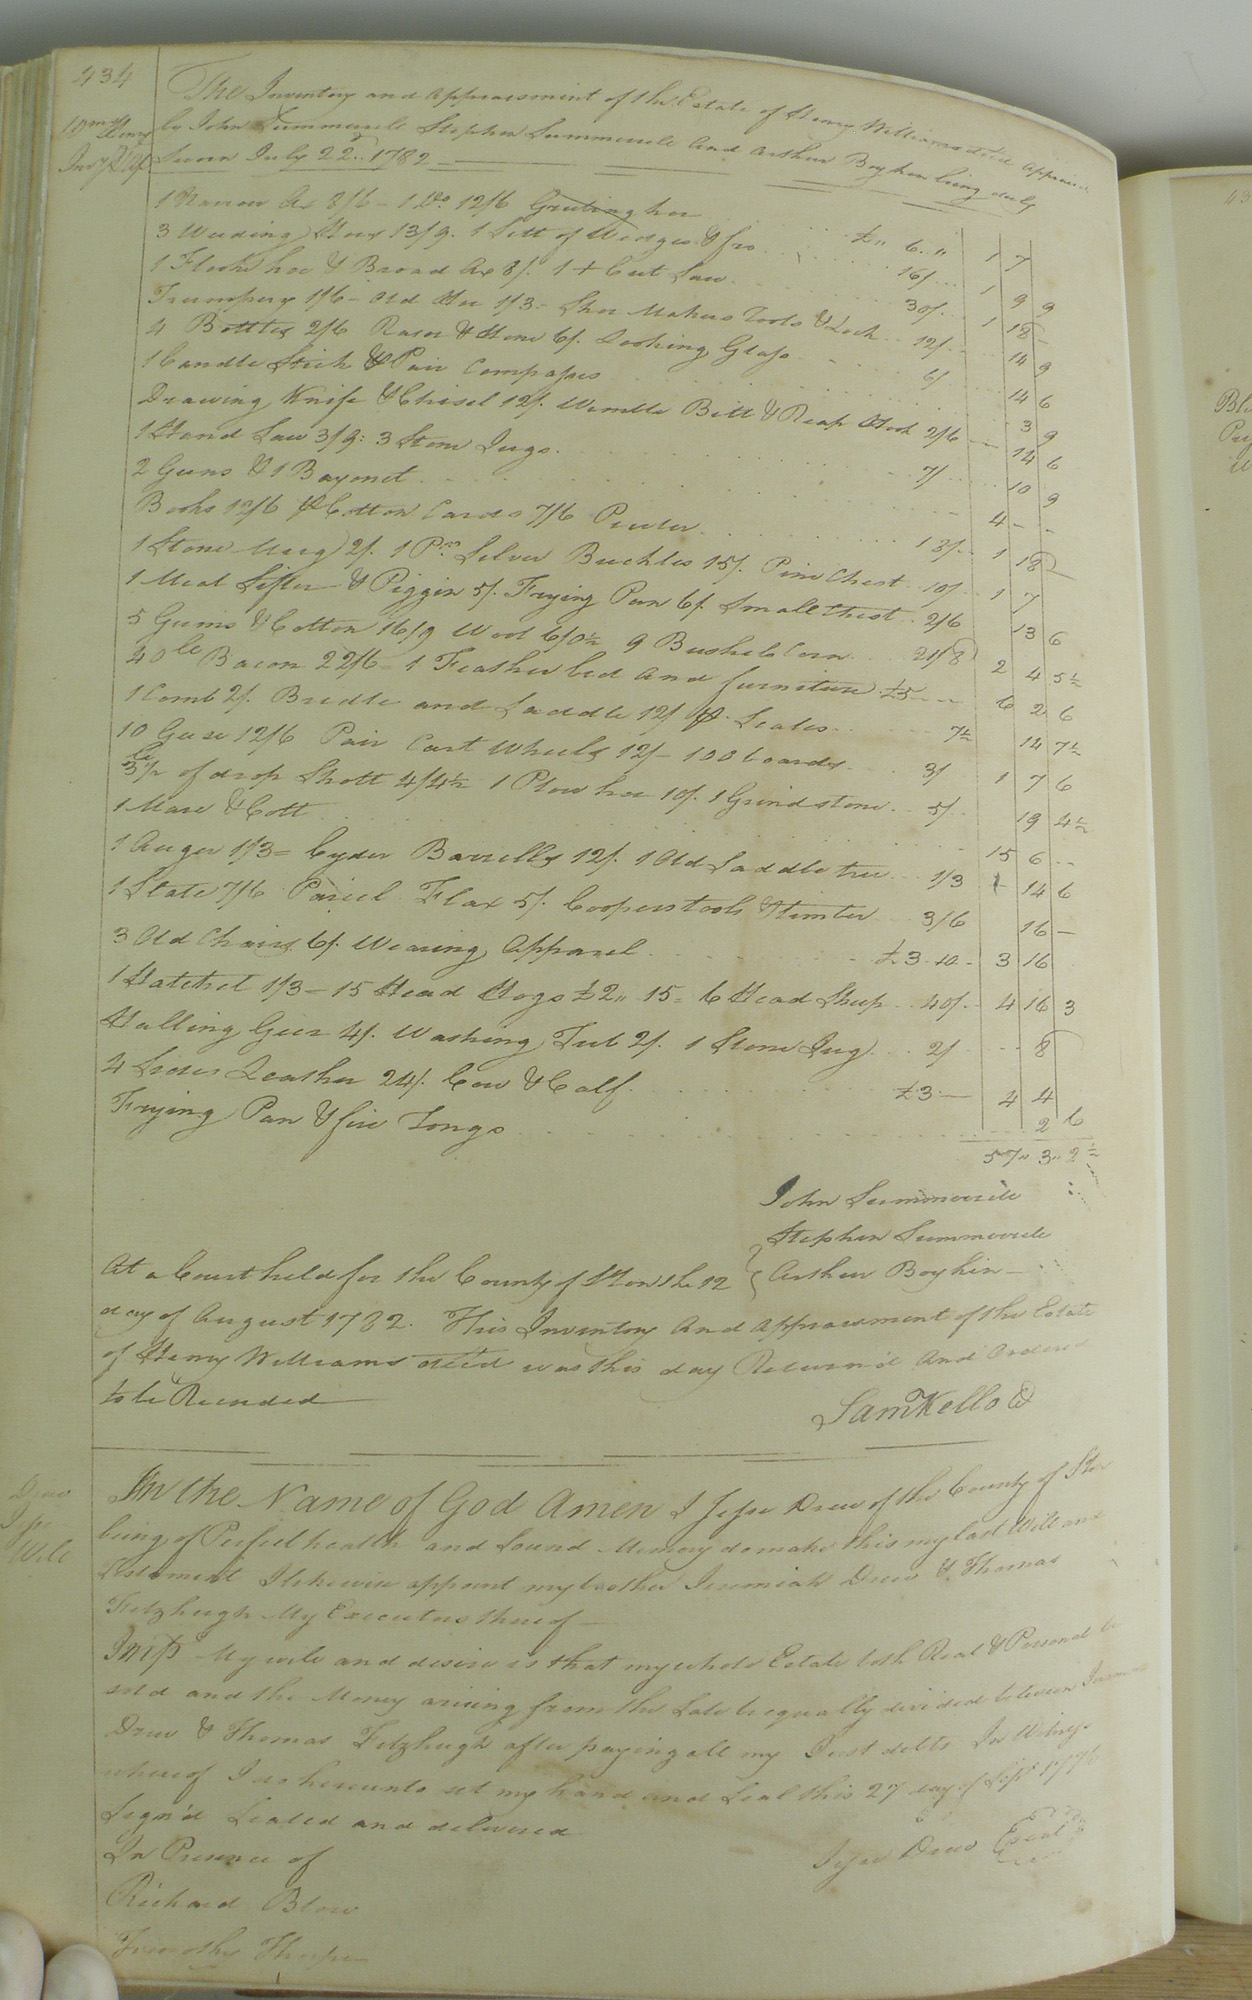 434
Wms Henry
Invy & Apt
The Inventory and Appraisment of the Estate of Henry Williams Decd Appraised
by John Summerell Stephen Summerell And Arthur Boykin being duly
Sworn July 22d. 1782
1 Narrow Ax 8/6 - 1 Do. 12/6 hoe £ " 6 " 1 7
3 Weeding Hoes 13/9. 1 Sett of Wedges & fro 16/ 1 9 9
1 Flooks hoe & Broad Ax 8/. 1 + Cut Saw 30/ 1 18 -
Trumpery 1/6 - Old Hoe 1/3 - Shoe Makers Tools & Lock 12/ 14 9
4 Bottles 2/6 Razor & Hone 6/. Looking Glass 6/ 14 6
1 Candle Stick & Pair Compasses 3 9
Drawing Knife & Chisel 12/. Wimble Bitt & Reap Hook 2/6 14 6
1 Hand Saw 3/9: 3 Stone Jugs 7/ 10 9
2 Guns & 1 Bayonet 4 - -
Books 12/6 Cotton Cards 7/6 Pewter 18/ 1 18 -
1 Stone Mug 2/. 1 Pr. Silver Buckles 15/. Pine Chest 10/ 1 7
1 Meal Sifter & Piggin 5/. Frying Pan 6/. Small Chest 2/6 13 6
5 Gums & Cotton 16/9 Wool 6/0½ 9 Bushels Corn 21/8 2 4 5½
40 lb Bacon 22/6 1 Feather bed and furniture £5 6 2 6
1 Comb 2/. Bridle and Saddle 12/ Scales 7½ 14 7½
10 Geese 12/6 Pair Cart Wheels 12/- 100 boards 3/ 1 7 6
3½ lb of drop Shott 4/4½ 1 Plow hoe 10/. 1 Grindstone 5/ 19 4½
1 Mare & Colt 15 6 -
1 Auger 1/3 = Cyder Barrells 12/. 1 Old Saddle tree 1/3 14 6
1 Slate 7/6 Parcel Flax 5/. Coopers tools & timber 3/6 16 -
3 Old Chairs 6/. Wearing Apparel £3. 10 - 3 16
1 Hatchel 1/3 - 15 Head Hogs £2 " 15 = 6 Head Sheep 40/ 4 16 3
Halling Geer 4/. Washing Tub 2/. 1 Stone Jug 2/ 8
4 Sides Leather 24/. Cow & Calf £3 - 4 4
Frying Pan & fire Tongs 2 6
57 " 3 " 2½
John Summerell
Stephen Summerell
Arthur Boykin
At a Court held for the County of Ston the 12
day of August 1782. This Inventory And Appraisment of the Estate
of Henry Williams Decd was this day Return'd And Ordered
to be Recorded
Saml Kello
Drew
Jesse
Will
In the Name of God Amen I Jesse Drew of the County of Ston
being of Perfect health and Sound Memory do make this my last Will and
Testament I likewise appoint my brother Jeremiah Drew & Thomas
Fitzhugh My Executors thereof
Imps My will and desire is that my whole Estate both Real & Personal be
sold and the Money arising from the Sale be equally divided between Jeremiah
Drew & Thomas Fitzhugh after paying all my Just debts In Witness
whereof I do hereunto set my hand and Seal this 27 day of Sept 1776
Sign'd Sealed and delivered
In Presence of
Jesse Drew Seal
Richard Blow
Timothy Thorpe